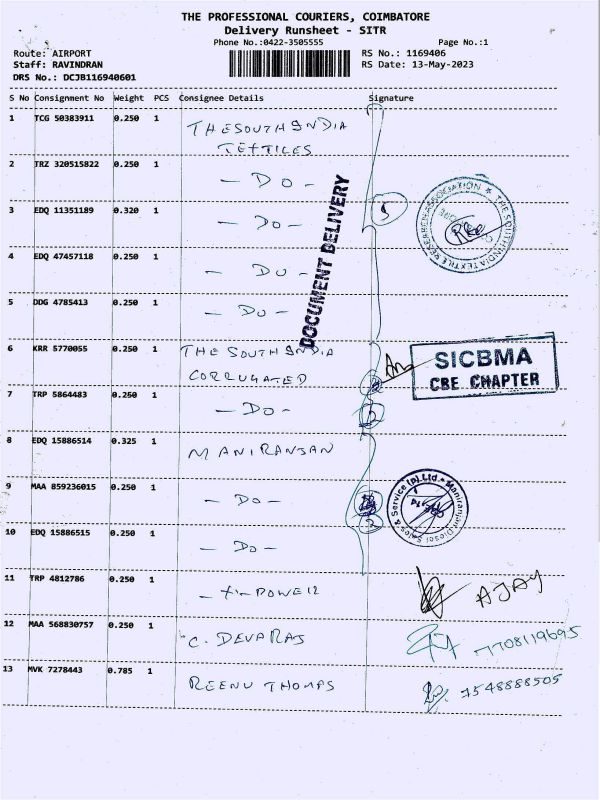 THE PROFESSIONAL COURIERS, COIMBATORE
Delivery Runsheet - SITR
Phone No.:0422-3505555 Page No.:1
Route: AIRPORT RS No.: 1169406
Staff: RAVINDRAN RS Date: 13-May-2023
DRS No.: DCJB116940601
S No Consignment No Weight PCS Consignee Details Signature
1 TCG 50383911 0.250 1 THE SOUTH INDIA
TEXTILES
2 TRZ 320515822 0.250 1 - DO -
3 EDQ 11351189 0.320 1 - DO -
5
THE SOUTH INDIA TEXTILE RESEARCH ASSOCIATION
4 EDQ 47457118 0.250 1 - DO -
5 DDG 4785413 0.250 1 - DO -
DOCUMENT DELIVERY
6 KRR 5770055 0.250 1 THE SOUTH INDIA
CORRUGATED
SICBMA
CBE CHAPTER
7 TRP 5864483 0.250 1 - DO -
8 EDQ 15886514 0.325 1 MANIRANJAN
9 MAA 859236015 0.250 1 - DO -
Maniranjan Diesel Sales & Service (p) Ltd.
10 EDQ 15886515 0.250 1 - DO -
11 TRP 4812786 0.250 1 POWER AJAY
12 MAA 568830757 0.250 1 C. DEVARAJ 7708119695
13 MVK 7278443 0.785 1 REENU THOMAS 7548888505